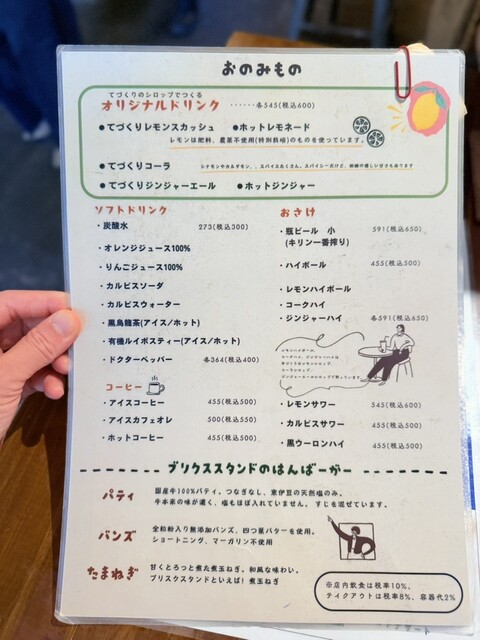 おのみもの
てづくりのシロップでつくる
オリジナルドリンク ‥‥‥各545(税込600)
●てづくりレモンスカッシュ ●ホットレモネード
レモンは肥料、農薬不使用(特別栽培)のものを使っています。
●てづくりコーラ
●てづくりジンジャーエール ●ホットジンジャー
ソフトドリンク
・炭酸水 273(税込300)
・オレンジジュース100%
・りんごジュース100%
・カルピスソーダ
・カルピスウォーター
・黒烏龍茶(アイス/ホット)
・有機ルイボスティー(アイス/ホット)
・ドクターペッパー 各364(税込400)
コーヒー
・アイスコーヒー 455(税込500)
・アイスカフェオレ 500(税込550)
・ホットコーヒー 455(税込500)
おさけ
・瓶ビール 小 591(税込650)
(キリン一番搾り)
・ハイボール 455(税込500)
・レモンハイボール
・コークハイ
・ジンジャーハイ 各591(税込650)
・レモンサワー 545(税込600)
・カルピスサワー 455(税込500)
・黒ウーロンハイ 455(税込500)
ブリクススタンドのはんばーがー
パティ
国産牛100%パティ。つなぎなし、東伊豆の天然塩のみ。
牛本来の味が濃く、塩もほぼ入れていません。 すじを混ぜています。
バンズ
全粒粉入り無添加バンズ、四つ葉バターを使用。
ショートニング、マーガリン不使用
たまねぎ
甘くとろっと煮た煮玉ねぎ。和風な味わい。
ブリスクスタンドといえば!煮玉ねぎ
※店内飲食は税率10%、
テイクアウトは税率8%、容器代2%